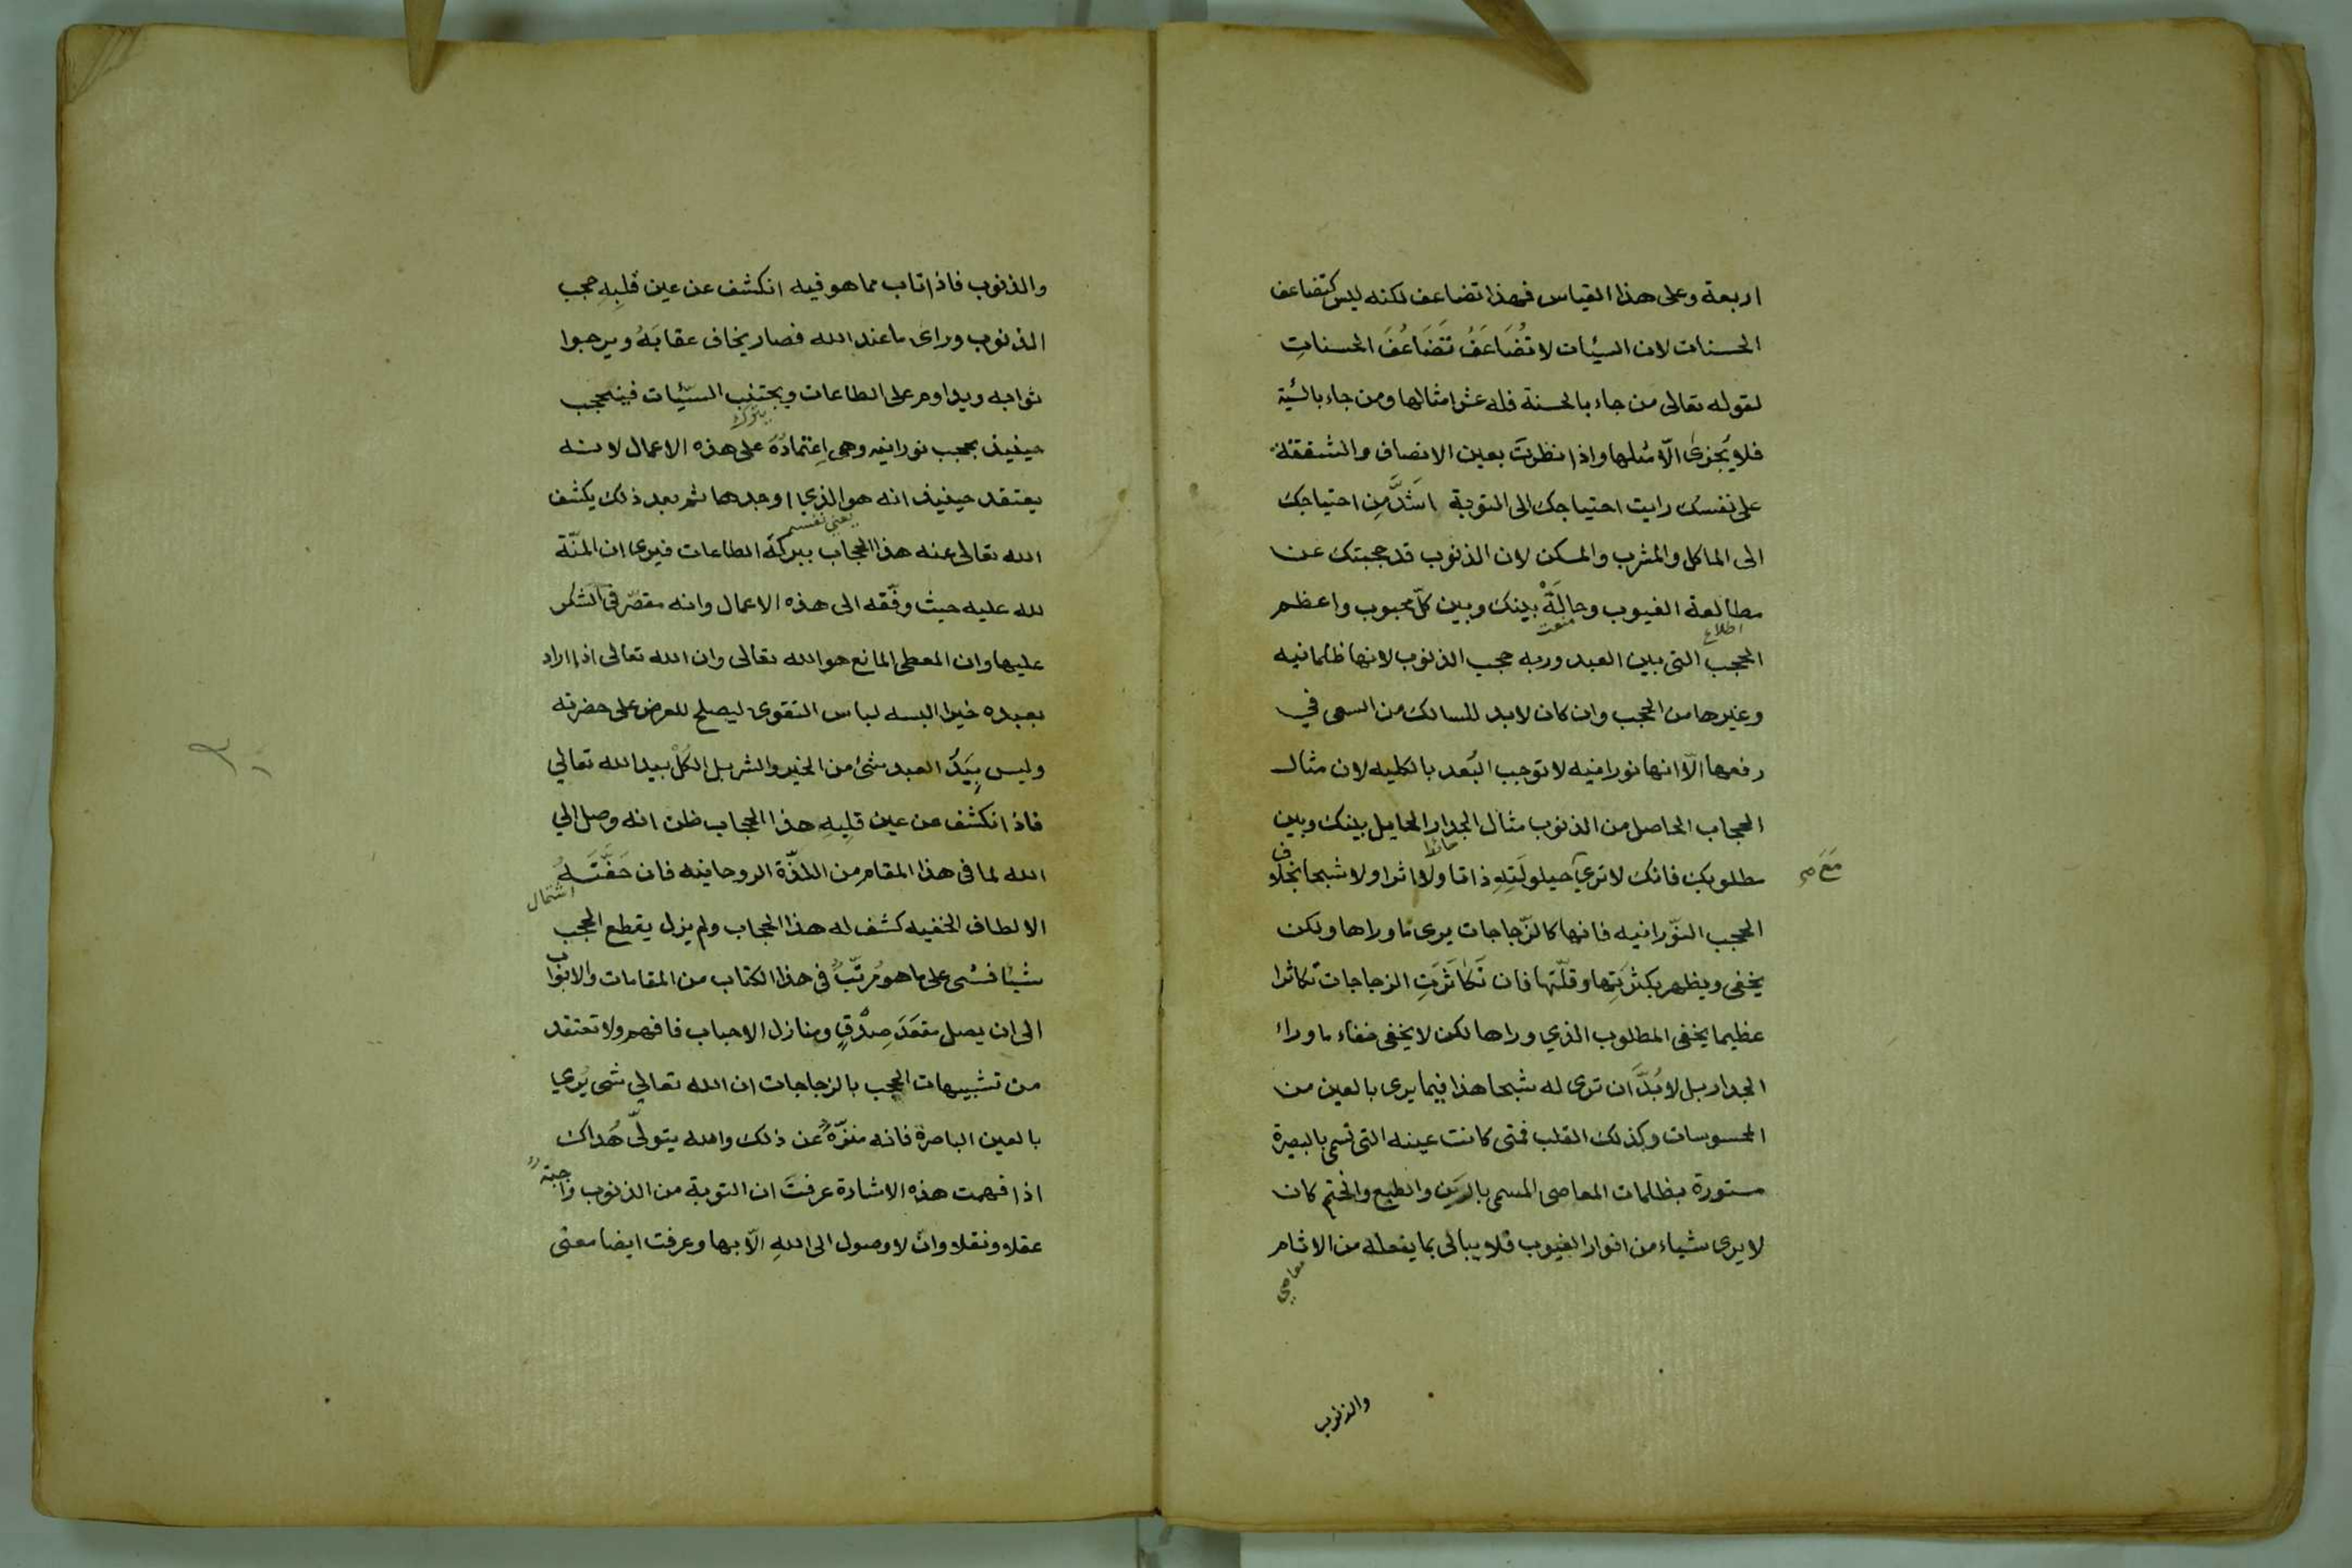 اربعة وعلى هذا القياس فهذا تضاعف لكنه ليس كتضاعف
الحسنات لان السيئات لا تُضَاعَفُ تَضَاعُفَ الحسناتِ
لقوله تعالى من جاء بالحسنة فله عشر امثالها ومن جاء بالسيئة
فلا يُجزى الّا مثلها واذا نظرتَ بعين الانصاف والشفقة
على نفسك رايت احتياجك الى التوبة اشَدَّ مِن احتياجك
الى الماكل والمشرب والمسكن لان الذنوب قد حجبتك عن
مطالعة الغيوب وحالَةْ بينك وبين كلّ محبوب واعظم
اطلاع
منعت
الحجب التى بين العبد وربه حجب الذنوب لانها ظلمانيه
وغيرها من الحجب وان كان لابد للسالك من السعى في
رفعها الّا انها نورانيه لا توجب البُعد بالكليه لان مثال
الحجاب الحاصل من الذنوب مثال الجدار الحايل بينك وبين
حائط
مطلوبك فانك لا تري حيلولَتِهِ ذاتا ولا اثرا ولا شبحا بخلاف
مَعَ صح
الحجب النّورانيه فانها كالزّجاجات يرى ما وراها ولكن
يخفى ويظهر بكثرَتِها وقلّتها فان تَكاثَرَتِ الزجاجات تكاثرا
عظيما يخفى المطلوب الذي وراها لكن لا يخفى خفاء ما وراء
الجدار بل لا بُدَّ ان ترى له شبحا هذا فيما يرى بالعين من
المحسوسات وكذلك القلب فمتى كانت عينه التى تسمى بالبصيرة
مستورة بظلمات المعاصى المسمى بالرَين والطبع والختم كان
لا يرى شياء من انوار الغيوب فلا يبالى بما يفعله من الاثام
معاصي
والذنوب
والذنوب فاذا تاب مما هو فيه انكشف عن عين قلبِهِ حجب
الذنوب وراى ما عند الله فصار يخاف عقابَهُ ويرجوا
ثوابه ويداوم على الطاعات ويجتنب السيّئات فينحجب
يترك
حينيذ بحجب نورانيه وهى اِعْتمادُهُ على هذه الاعمال لانه
يعتقد حينيذ انه هو الذي اوجدها ثم بعد ذلك يكشف
يعني نفسه
الله تعالى عنه هذا الحجاب ببركة الطاعات فيرى ان المنّة
لله عليه حيث وفّقه الى هذه الاعمال وانه مقصّر في الشكر
عليها وان المعطى المانع هو الله تعالى وان الله تعالى اذا اراد
بعبده خيرا البسه لباس التقوى ليصلح للعرض على حضرته
وليس بِيَدِ العبد شئ من الخير والشر بل الكُلْ بيد الله تعالي
فاذا انكشف عن عين قلبِهِ هذا الحجاب ظن انه وصل الي
الله لما فى هذا المقام من اللذّة الروحانيه فان حَفَّتَهُ
اشتمال
الالطاف الخفيه كشف له هذا الحجاب ولم يزل يقطع الحجب
شيئا فشئ على ما هو مُرتّبٌ فى هذا الكتاب من المقامات والابواب
الى ان يصل مقعَدَ صِدْقٍ ومنازل الاحباب فافهم ولا تعتقد
من تشبيهات الحجب بالزجاجات ان الله تعالي شى يُري
بالعين الباصرة فانه منزّهٌ عن ذلك والله يتولّى هُداك
اذا فهمت هذه الاشارة عرفتَ ان التوبة من الذنوب واجبةٌ
عقلا ونقلا وان لا وصول الى اللهِ الّا بها وعرفت ايضا معنى